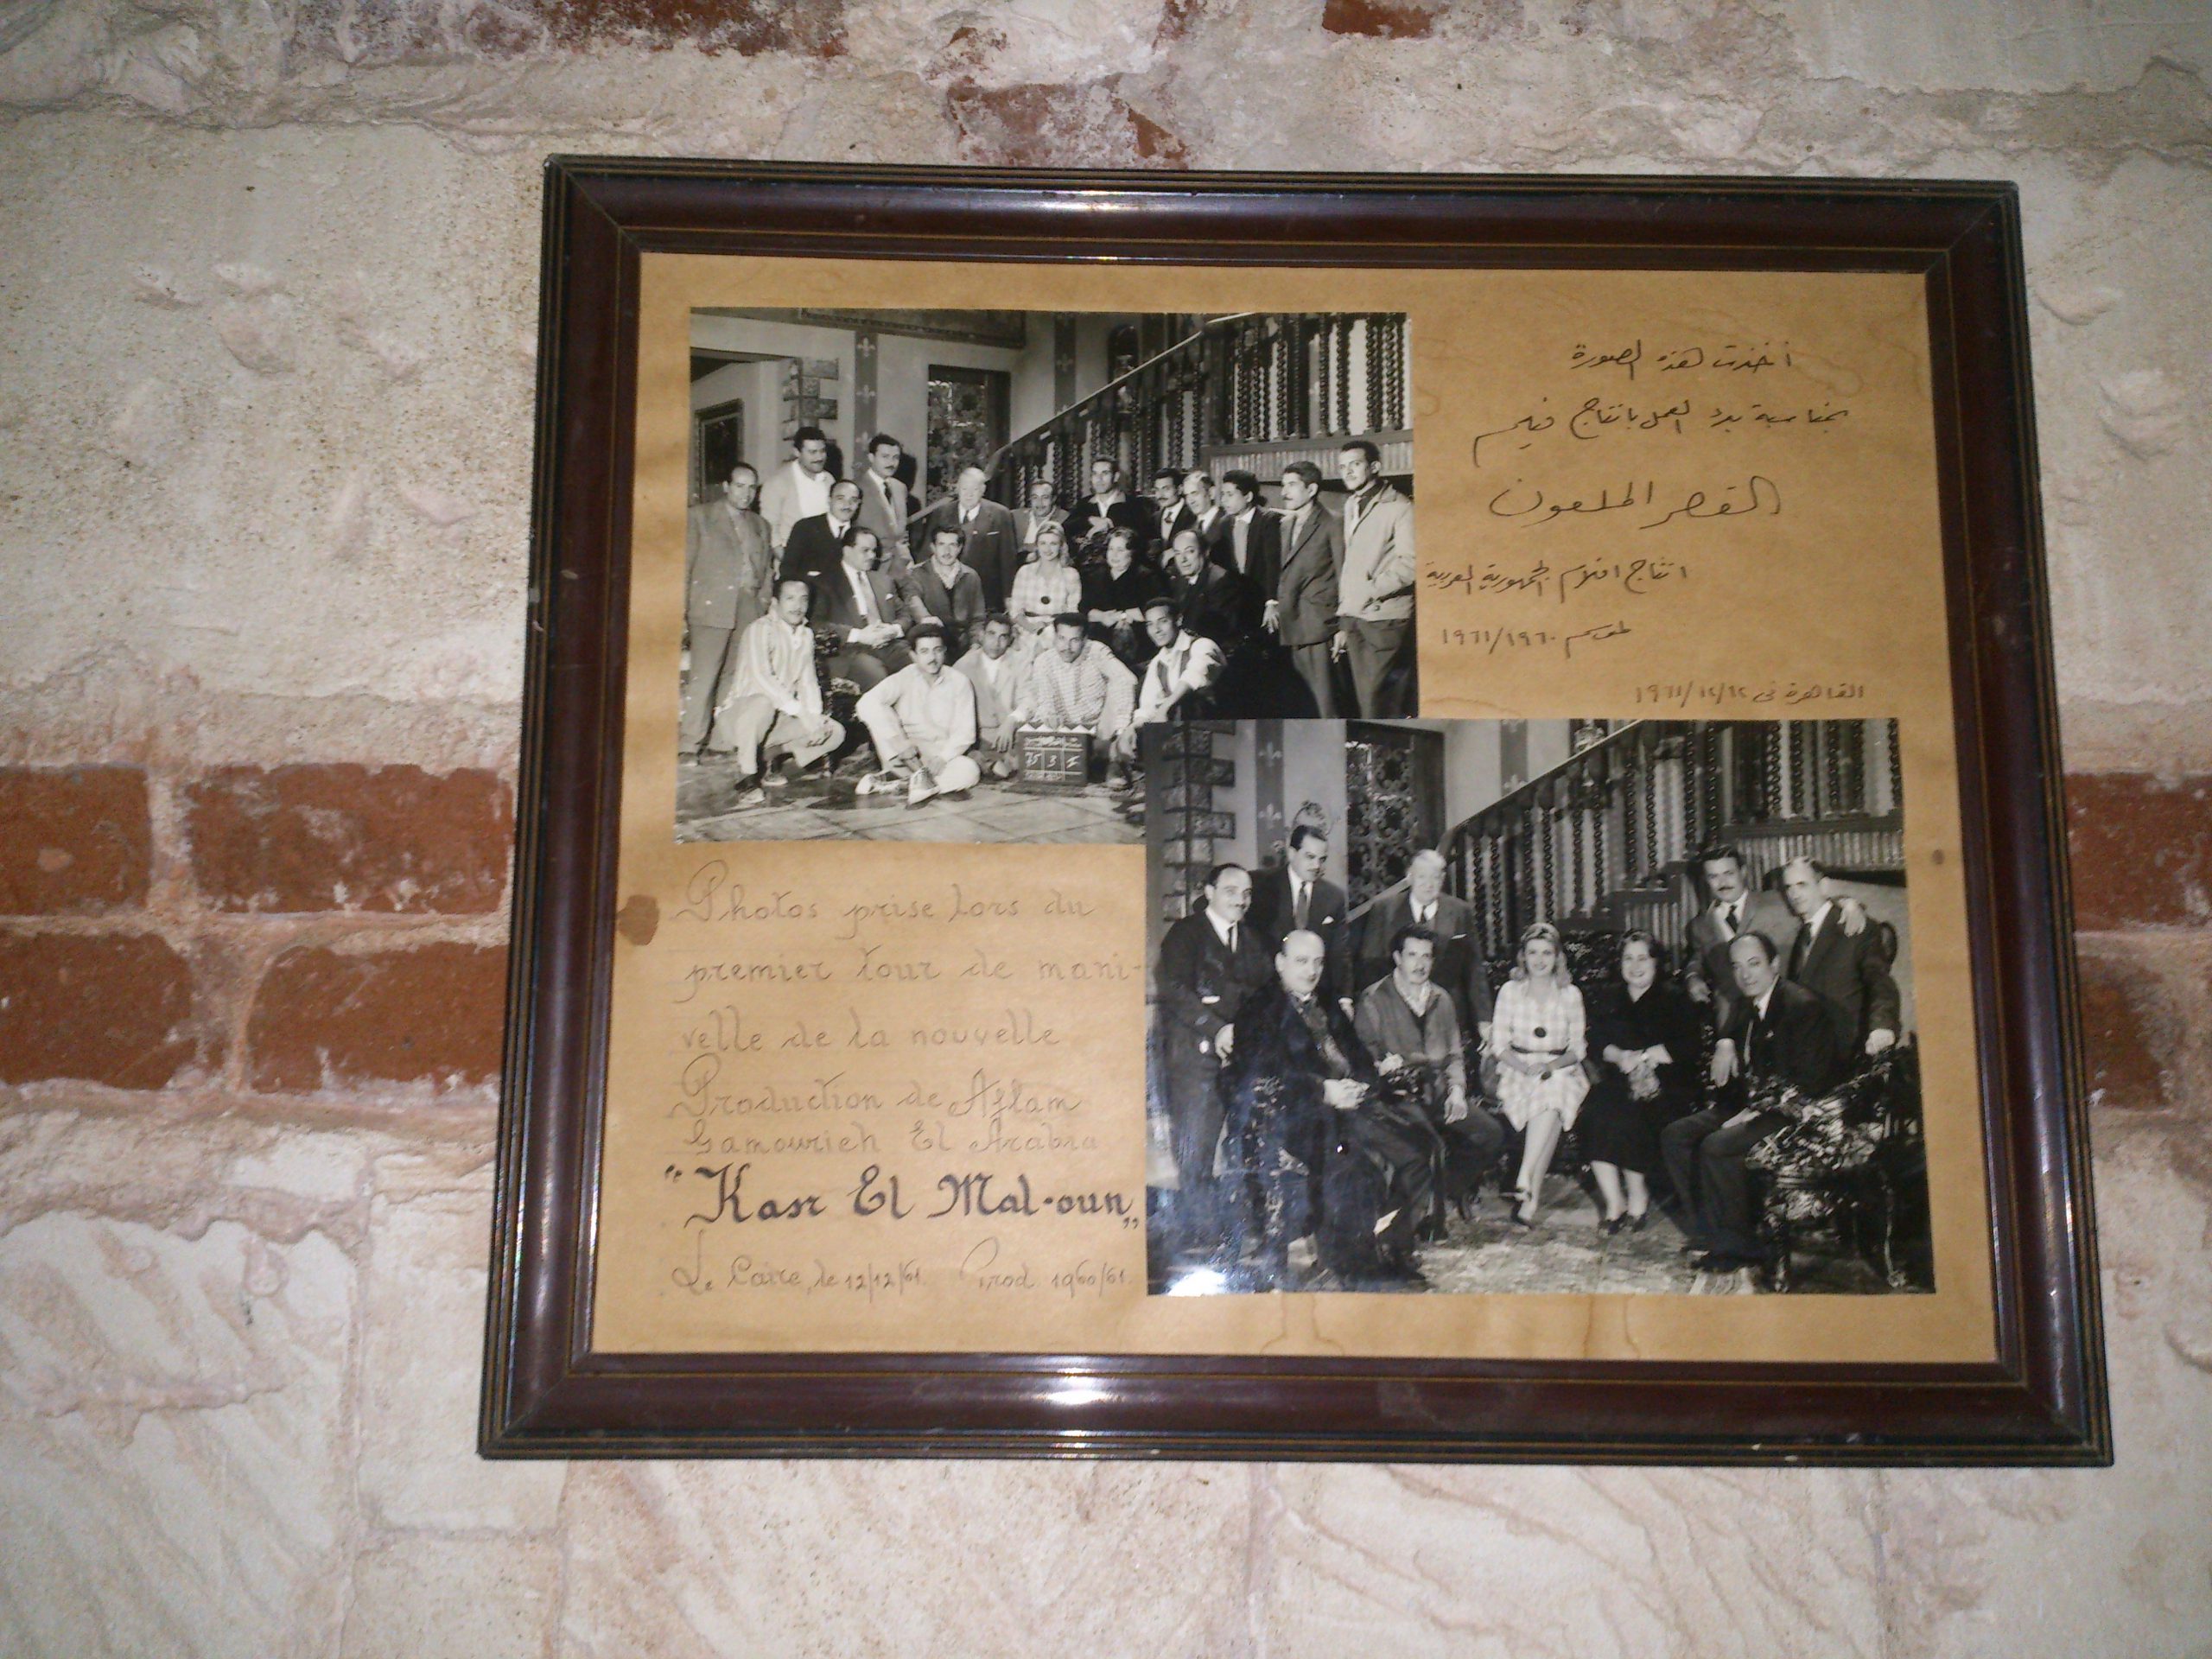 أخذت هذه الصورة
بمناسبة بدء العمل بانتاج فيلم
القصر الملعون
انتاج افلام الجمهورية العربية
موسم ١٩٦١/١٩٦٠
القاهرة فى ١٩٦١/١٢/١٢
75 3
Photos prise lors du
premier tour de mani-
velle de la nouvelle
Production de Aflam
Gamourieh El Arabia
"Kasr El Mal-oun„
Le Caire, le 12/12/61. Prod. 1960/61.